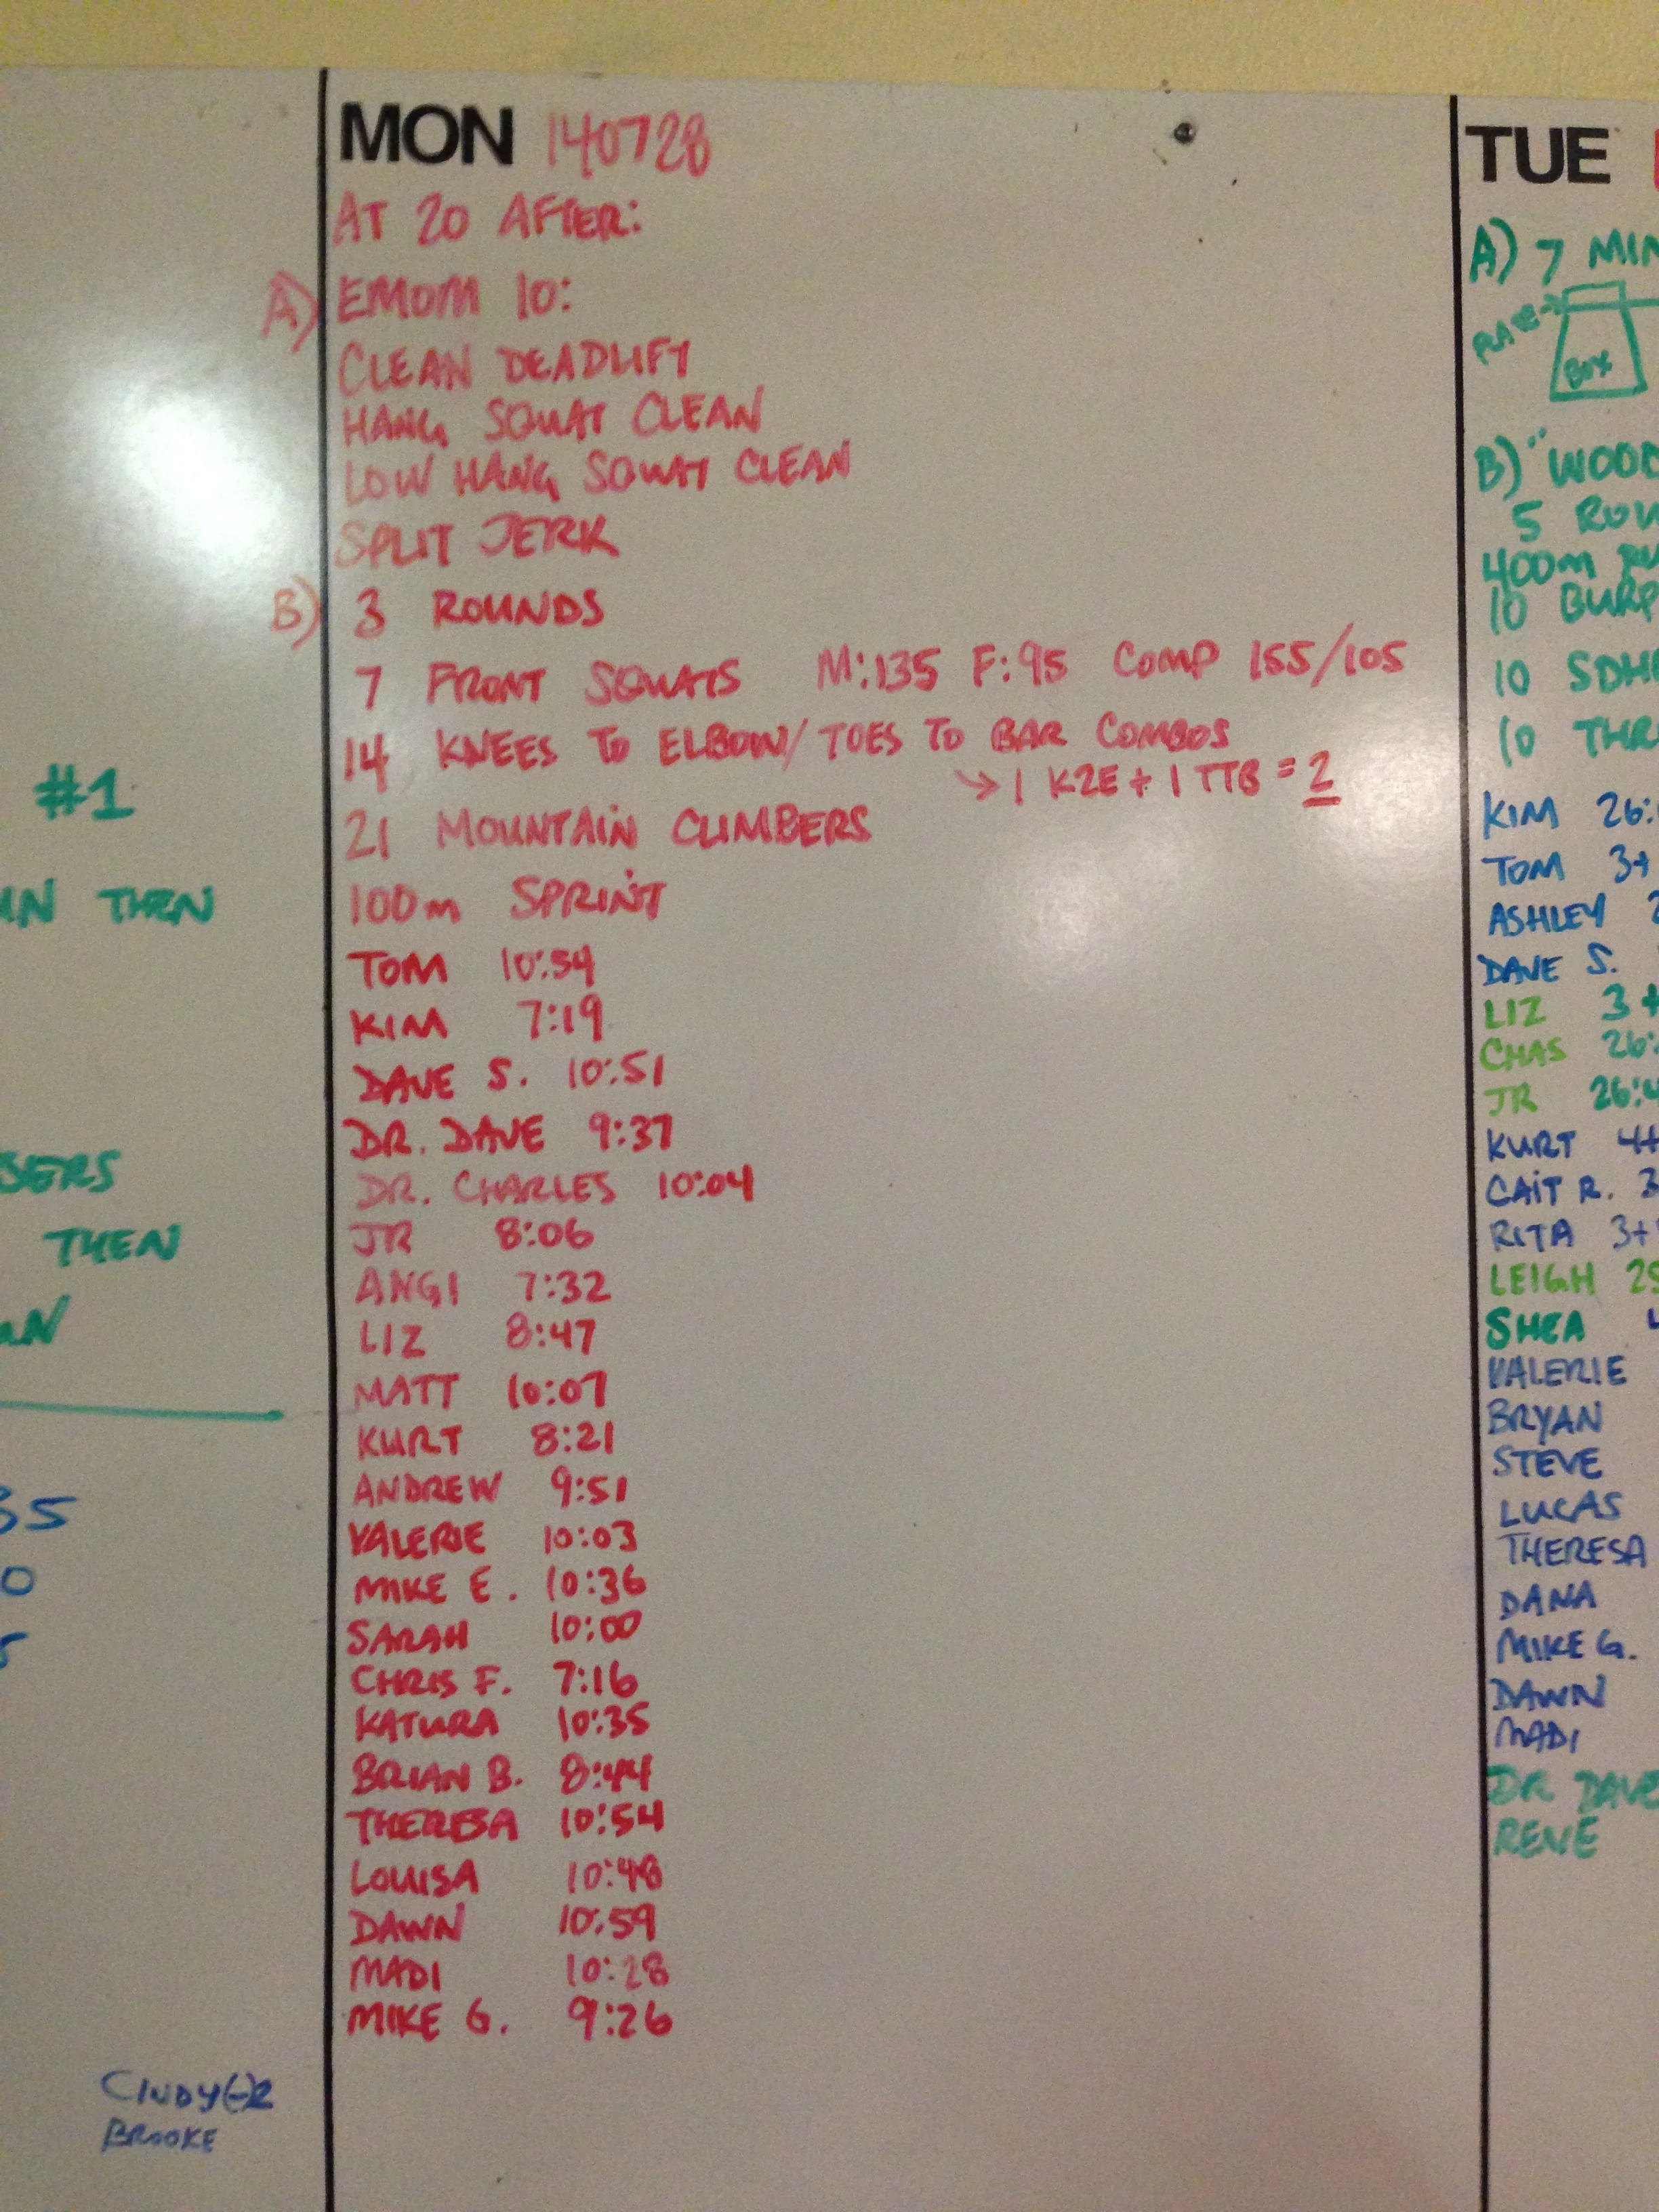 #1
THEN
THEN
35
0
5
CINDY(-)2
BROOKE
MON 140728
AT 20 AFTER:
A) EMOM 10:
CLEAN DEADLIFT
HANG SQUAT CLEAN
LOW HANG SQUAT CLEAN
SPLIT JERK
B) 3 ROUNDS
7 FRONT SQUATS M:135 F:95 COMP 155/105
14 KNEES TO ELBOW/TOES TO BAR COMBOS
→ 1 K2E + 1 TTB = 2
21 MOUNTAIN CLIMBERS
100m SPRINT
TOM 10:54
KIM 7:19
DAVE S. 10:51
DR. DAVE 9:37
DR. CHARLES 10:04
JR 8:06
ANGI 7:32
LIZ 8:47
MATT 10:07
KURT 8:21
ANDREW 9:51
VALERIE 10:03
MIKE E. 10:36
SARAH 10:00
CHRIS F. 7:16
KATURA 10:35
BRIAN B. 8:44
THERESA 10:54
LOUISA 10:48
DAWN 10:59
MADI 10:28
MIKE G. 9:26
TUE
A) 7 MIN
PLATE→
BOX
B) "WOOD
5 ROU
400m RU
10 BURP
10 SDH
10 THR
KIM 26:
TOM 3+
ASHLEY 2
DAVE S.
LIZ 3+
CHAS 26:
JR 26:4
KURT 4+
CAIT R. 3
RITA 3+
LEIGH 25
SHEA 4
VALERIE
BRYAN
STEVE
LUCAS
THERESA
DANA
MIKE G.
DAWN
MADI
DR DAVE
RENE